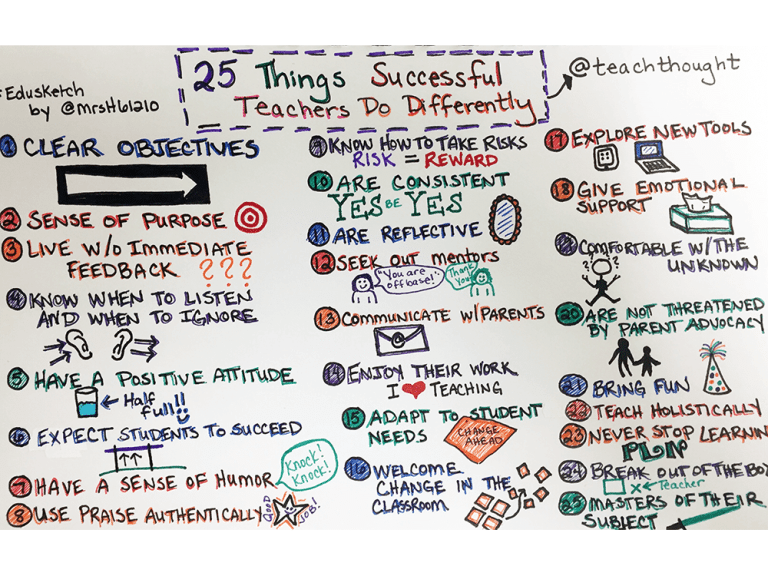 25 Things Successful
Teachers Do Differently
@teachthought
#Edusketch
by @mrsH61210
1 CLEAR OBJECTIVES
2 SENSE OF PURPOSE
3 LIVE W/O IMMEDIATE
FEEDBACK ???
4 KNOW WHEN TO LISTEN
AND WHEN TO IGNORE
5 HAVE A POSITIVE ATTITUDE
Half
full!!
6 EXPECT STUDENTS TO SUCCEED
7 HAVE A SENSE OF HUMOR
Knock!
Knock!
8 USE PRAISE AUTHENTICALLY
GOOD JOB!
9 KNOW HOW TO TAKE RISKS
RISK = REWARD
10 ARE CONSISTENT
YES BE YES
11 ARE REFLECTIVE
12 SEEK OUT mentors
"You are
off base!"
Thank
You!
13 COMMUNICATE W/PARENTS
@
14 ENJOY THEIR WORK
I ❤ TEACHING
15 ADAPT TO STUDENT
NEEDS
CHANGE
AHEAD
16 WELCOME
CHANGE IN THE
CLASSROOM
17 EXPLORE NEW TOOLS
18 GIVE EMOTIONAL
SUPPORT
19 COMFORTABLE W/THE
UNKNOWN
? ?
20 ARE NOT THREATENED
BY PARENT ADVOCACY
21 BRING FUN
22 TEACH HOLISTICALLY
23 NEVER STOP LEARNIN
24 BREAK OUT OF THE BO
x ← Teacher
25 MASTERS OF THEIR
SUBJECT